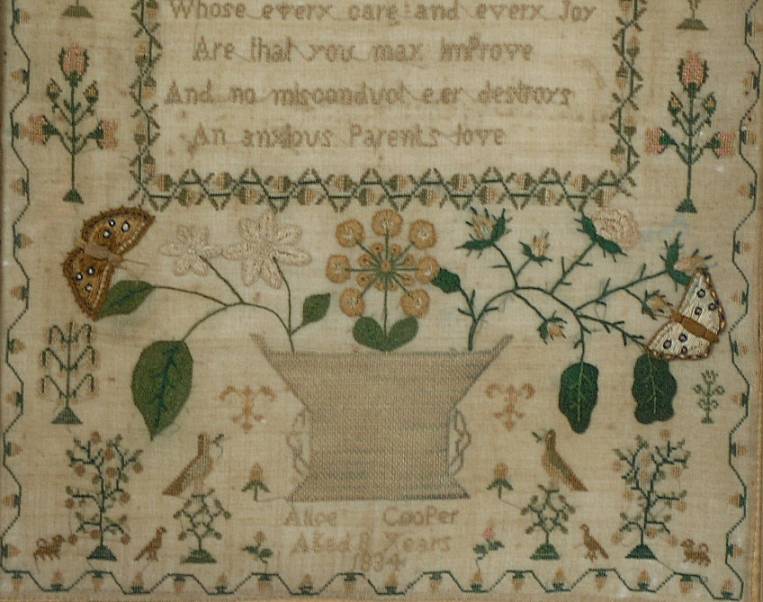 Whose every care and every Joy
Are that you may ImProve
And no misconduct e.er destroys
An anxious Parents love
Alice Cooper
Aged 8 Years
1834